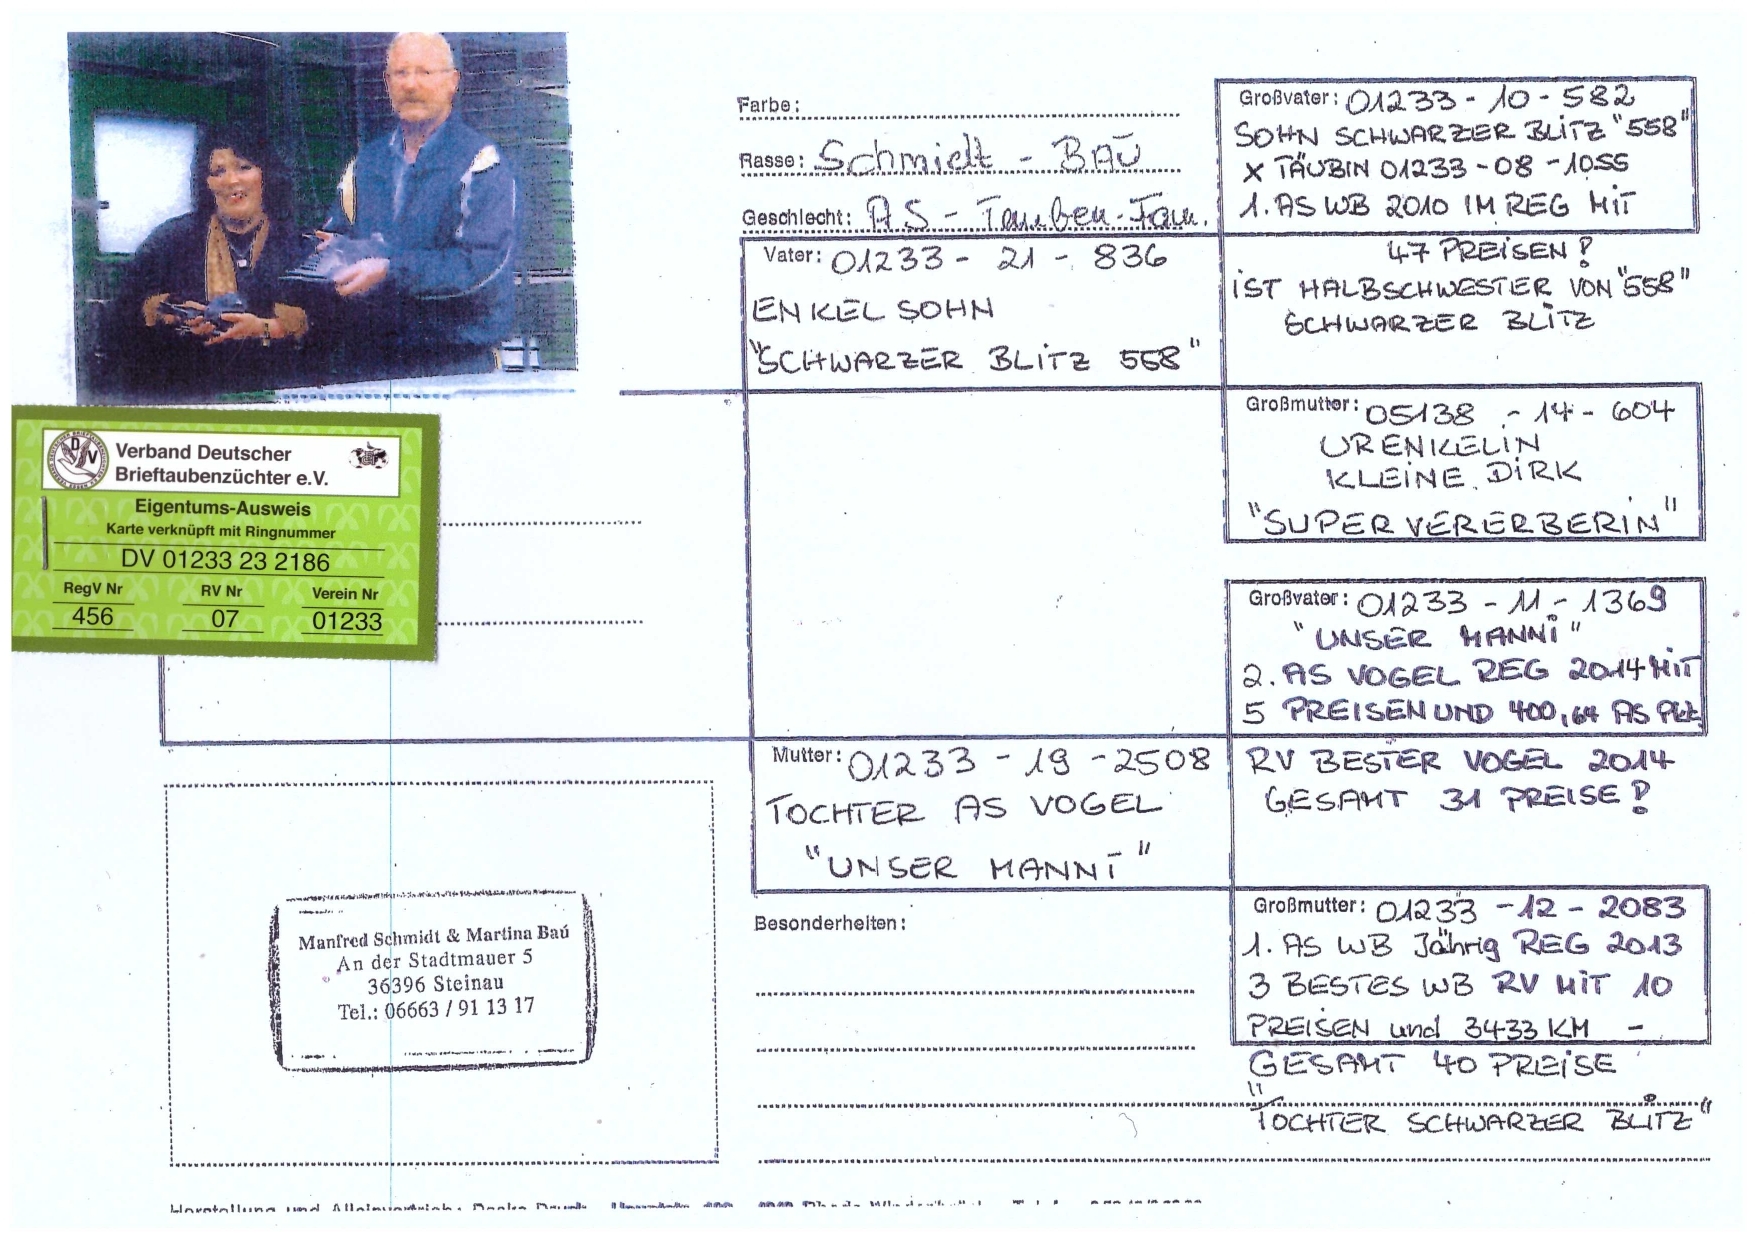 Farbe:
Rasse: Schmidt - BAÚ
Geschlecht: AS - Tauben-Fam.
Vater: 01233 - 21 - 836
ENKEL SOHN
"SCHWARZER BLITZ 558"
Großvater: 01233 - 10 - 582
SOHN SCHWARZER BLITZ "558"
X TÄUBIN 01233 - 08 - 1055
1. AS WB 2010 IM REG MIT
47 PREISEN!
IST HALBSCHWESTER VON "558"
SCHWARZER BLITZ
Großmutter: 05138 - 14 - 604
URENKELIN
KLEINE DIRK
"SUPER VERERBERIN"
Verband Deutscher
Brieftaubenzüchter e.V.
Eigentums-Ausweis
Karte verknüpft mit Ringnummer
DV 01233 23 2186
RegV Nr RV Nr Verein Nr
456 07 01233
Großvater: 01233 - 11 - 1369
"UNSER MANNI"
2. AS VOGEL REG 2014 MIT
5 PREISEN UND 400,64 AS Pkt.
RV BESTER VOGEL 2014
GESAMT 31 PREISE!
Mutter: 01233 - 19 - 2508
TOCHTER AS VOGEL
"UNSER MANNI"
Großmutter: 01233 - 12 - 2083
1. AS WB Jährig REG 2013
3 BESTES WB RV MIT 10
PREISEN und 3433 KM -
GESAMT 40 PREISE
"TOCHTER SCHWARZER BLITZ"
Besonderheiten:
Manfred Schmidt & Martina Baú
An der Stadtmauer 5
36396 Steinau
Tel.: 06663 / 91 13 17
Herstellung und Alleinvertrieb: